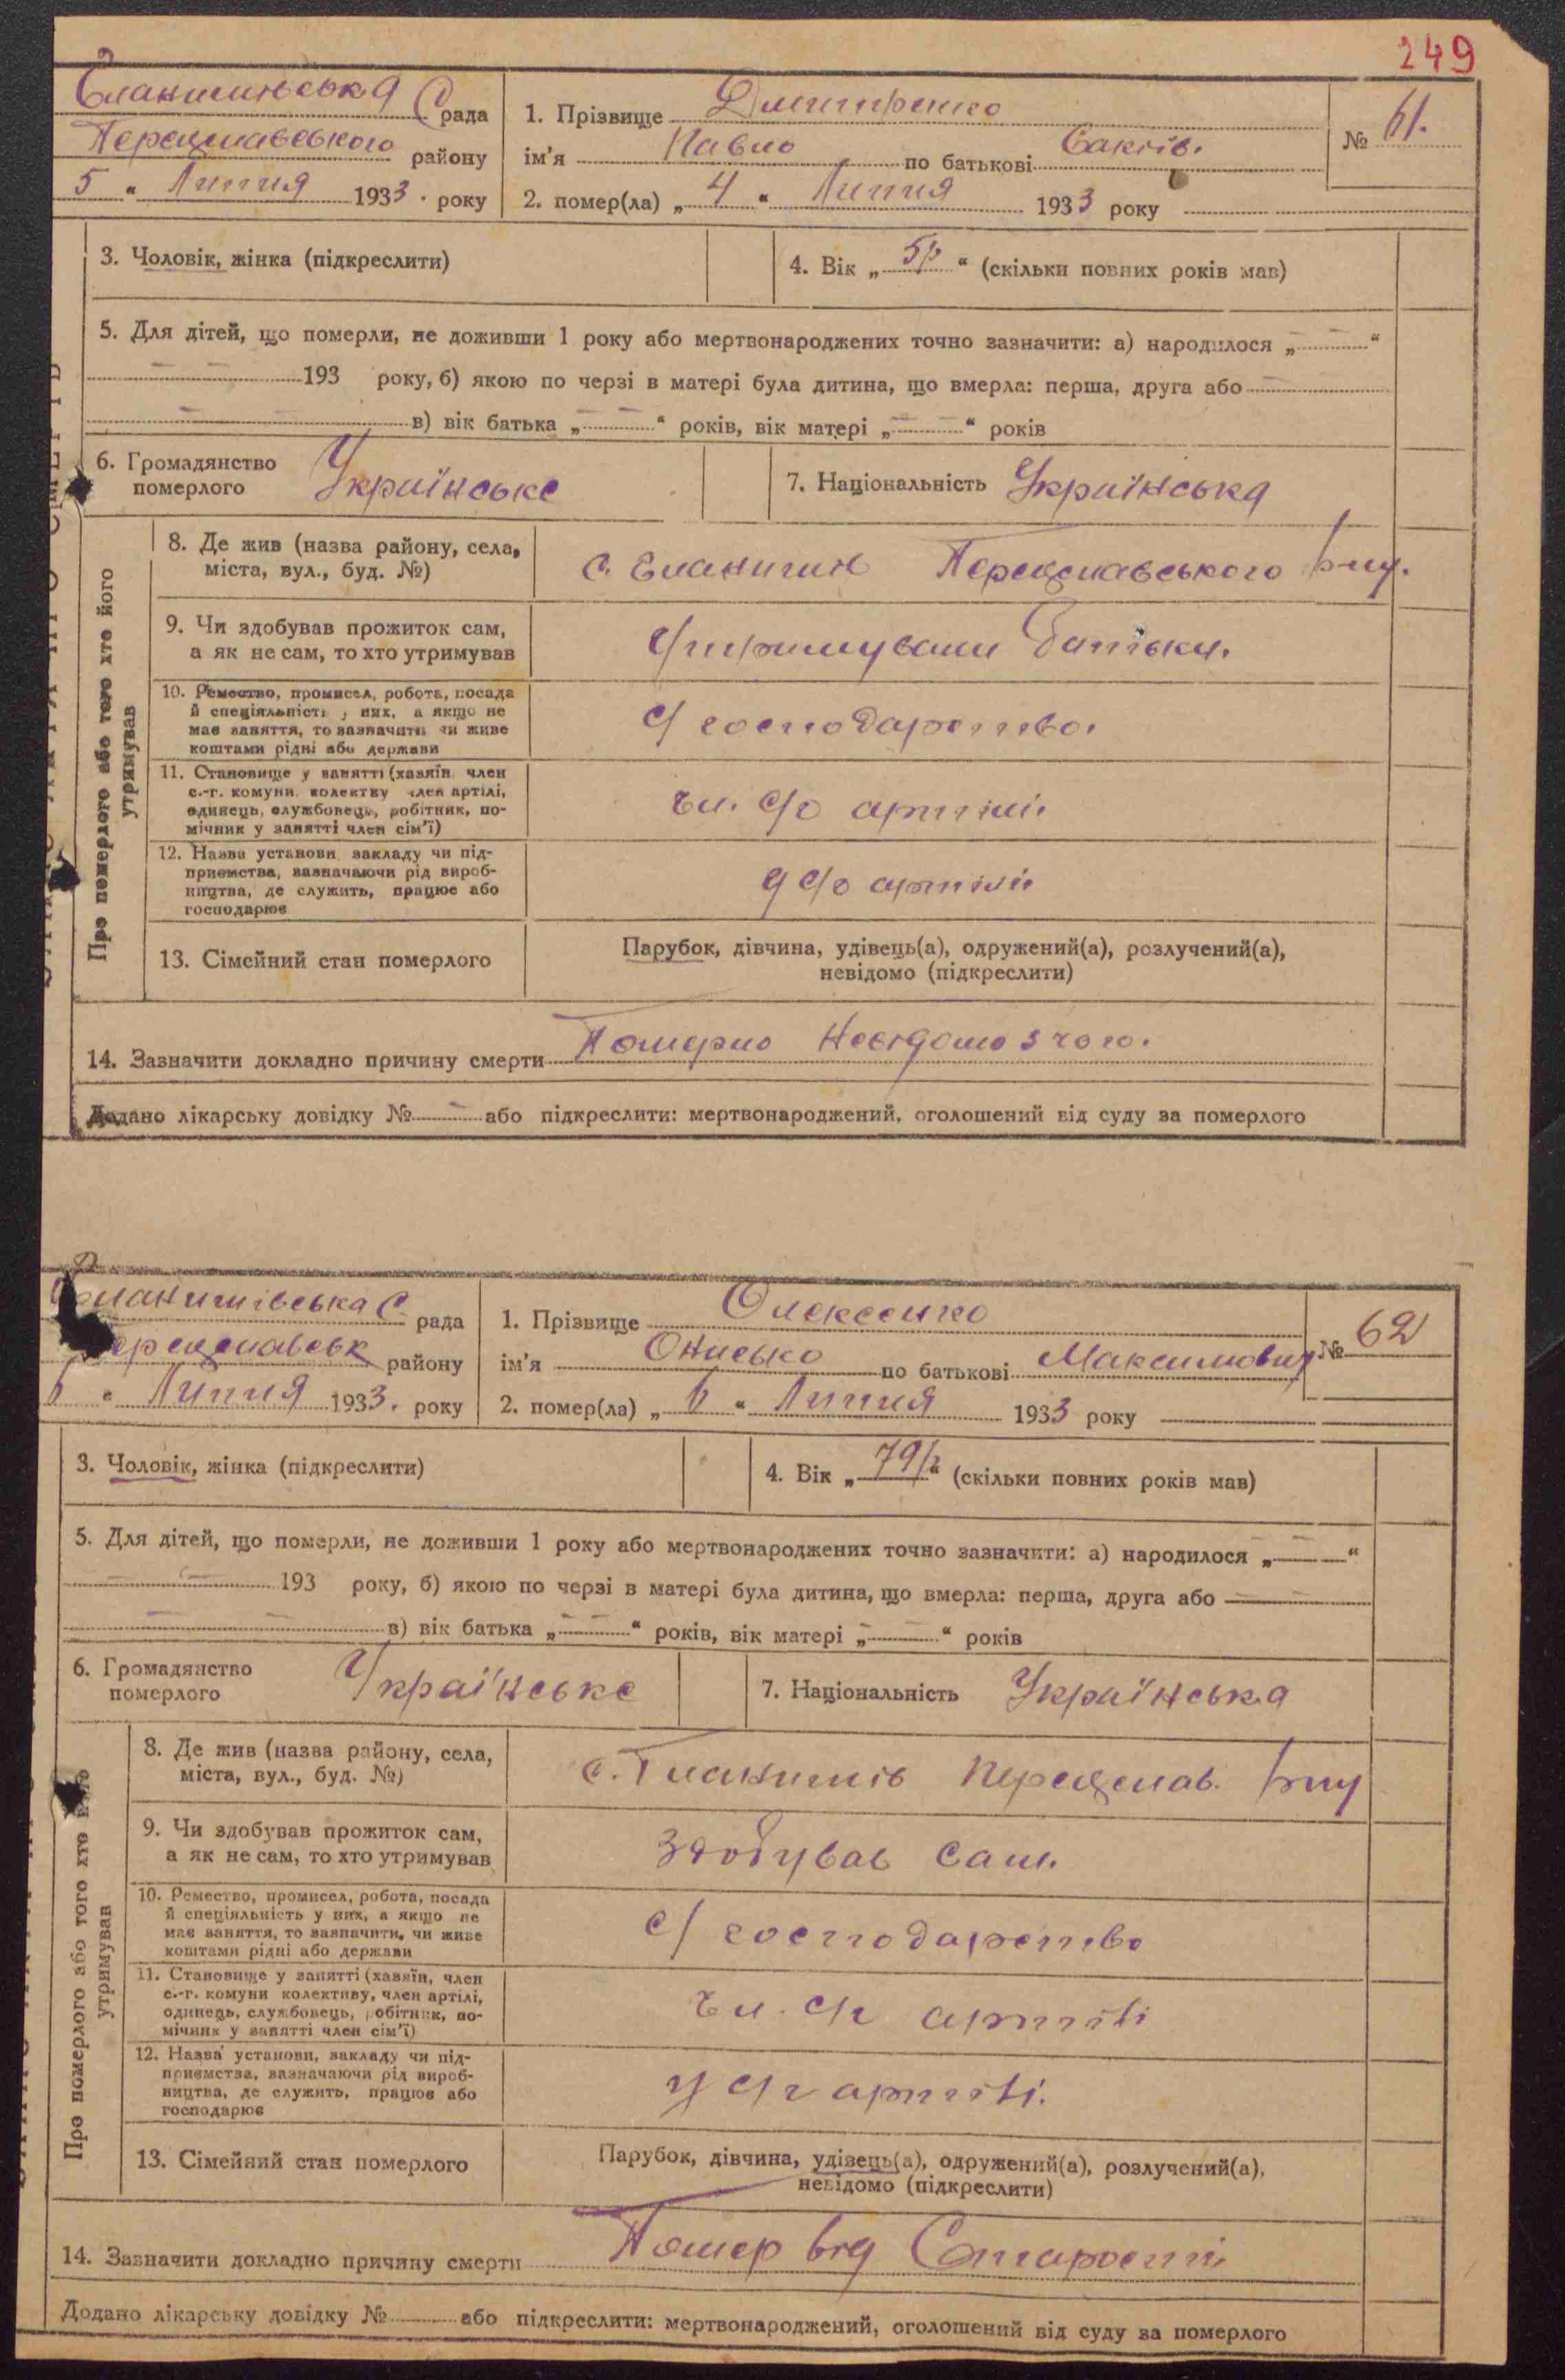 249
Гланишівська С рада
Переяславського району
5 " Липня 1933. року
1. Прізвище Дмитренко
ім'я Павло по батькові Саків.
№ 61.
2. помер(ла) „ 4 " Липня 1933 року
3. Чоловік, жінка (підкреслити)
4. Вік „ 5р " (скільки повних років мав)
5. Для дітей, що померли, не доживши 1 року або мертвонароджених точно зазначити: а) народилося „ — — "
— — 193 року, б) якою по черзі в матері була дитина, що вмерла: перша, друга або —
— — в) вік батька „ — — " років, вік матері „ — — " років
6. Громадянство
померлого
Українське
7. Національність Українська
Про померлого або того хто його
утримував
8. Де жив (назва району, села,
міста, вул., буд. №)
Переяславського р-ну.
9. Чи здобував прожиток сам,
а як не сам, то хто утримував
Утримували батьки.
10. Ремество, промисел, робота, посада
й спеціяльність у них, а якщо не
має заняття, то зазначити чи живе
коштами рідні або держави
С/господарство.
11. Становище у занятті (хазяїн член
с.-г. комуни колектву член артілі,
одинець, службовець, робітник, по-
мічник у занятті член сім'ї)
Чл. с/г артілі.
12. Назва установи закладу чи під-
приємства, зазначаючи рід вироб-
ництва, де служить, працює або
господарює
у с/г артілі
13. Сімейний стан померлого
Парубок, дівчина, удівець(а), одружений(а), розлучений(а),
невідомо (підкреслити)
14. Зазначити докладно причину смерти Померло невідомо з чого.
Додано лікарську довідку № — або підкреслити: мертвонароджений, оголошений від суду за померлого
Гланишівська С. рада
Переяславськ району
6 " Липня 1933. року
1. Прізвище Олексенко
ім'я Онисько по батькові Максимович
№ 62
2. помер(ла) „ 6 " Липня 1933 року
3. Чоловік, жінка (підкреслити)
4. Вік „ 79р " (скільки повних років мав)
5. Для дітей, що померли, не доживши 1 року або мертвонароджених точно зазначити: а) народилося „ — — "
— — 193 року, б) якою по черзі в матері була дитина, що вмерла: перша, друга або —
— — в) вік батька „ — — " років, вік матері „ — " років
6. Громадянство
померлого
Українське
7. Національність Українська
Про померлого або того хто його
утримував
8. Де жив (назва району, села,
міста, вул., буд. №)
с. Гланишів Переяслав. р-ну
9. Чи здобував прожиток сам,
а як не сам, то хто утримував
Здобував сам.
10. Ремество, промисел, робота, посада
й спеціяльність у них, а якщо не
має заняття, то зазначити, чи живе
коштами рідні або держави
С/господарство
11. Становище у занятті (хазяїн, член
с.-г. комуни колективу, член артілі,
одинець, службовець, робітник, по-
мічник у занятті член сім'ї)
Чл. с/г артілі
12. Назва установи, закладу чи під-
приємства, зазначаючи рід вироб-
ництва, де служить, працює або
господарює
у с/г артілі.
13. Сімейний стан померлого
Парубок, дівчина, удівець(а), одружений(а), розлучений(а),
невідомо (підкреслити)
14. Зазначити докладно причину смерти Помер від Старости
Додано лікарську довідку № або підкреслити: мертвонароджений, оголошений від суду за померлого